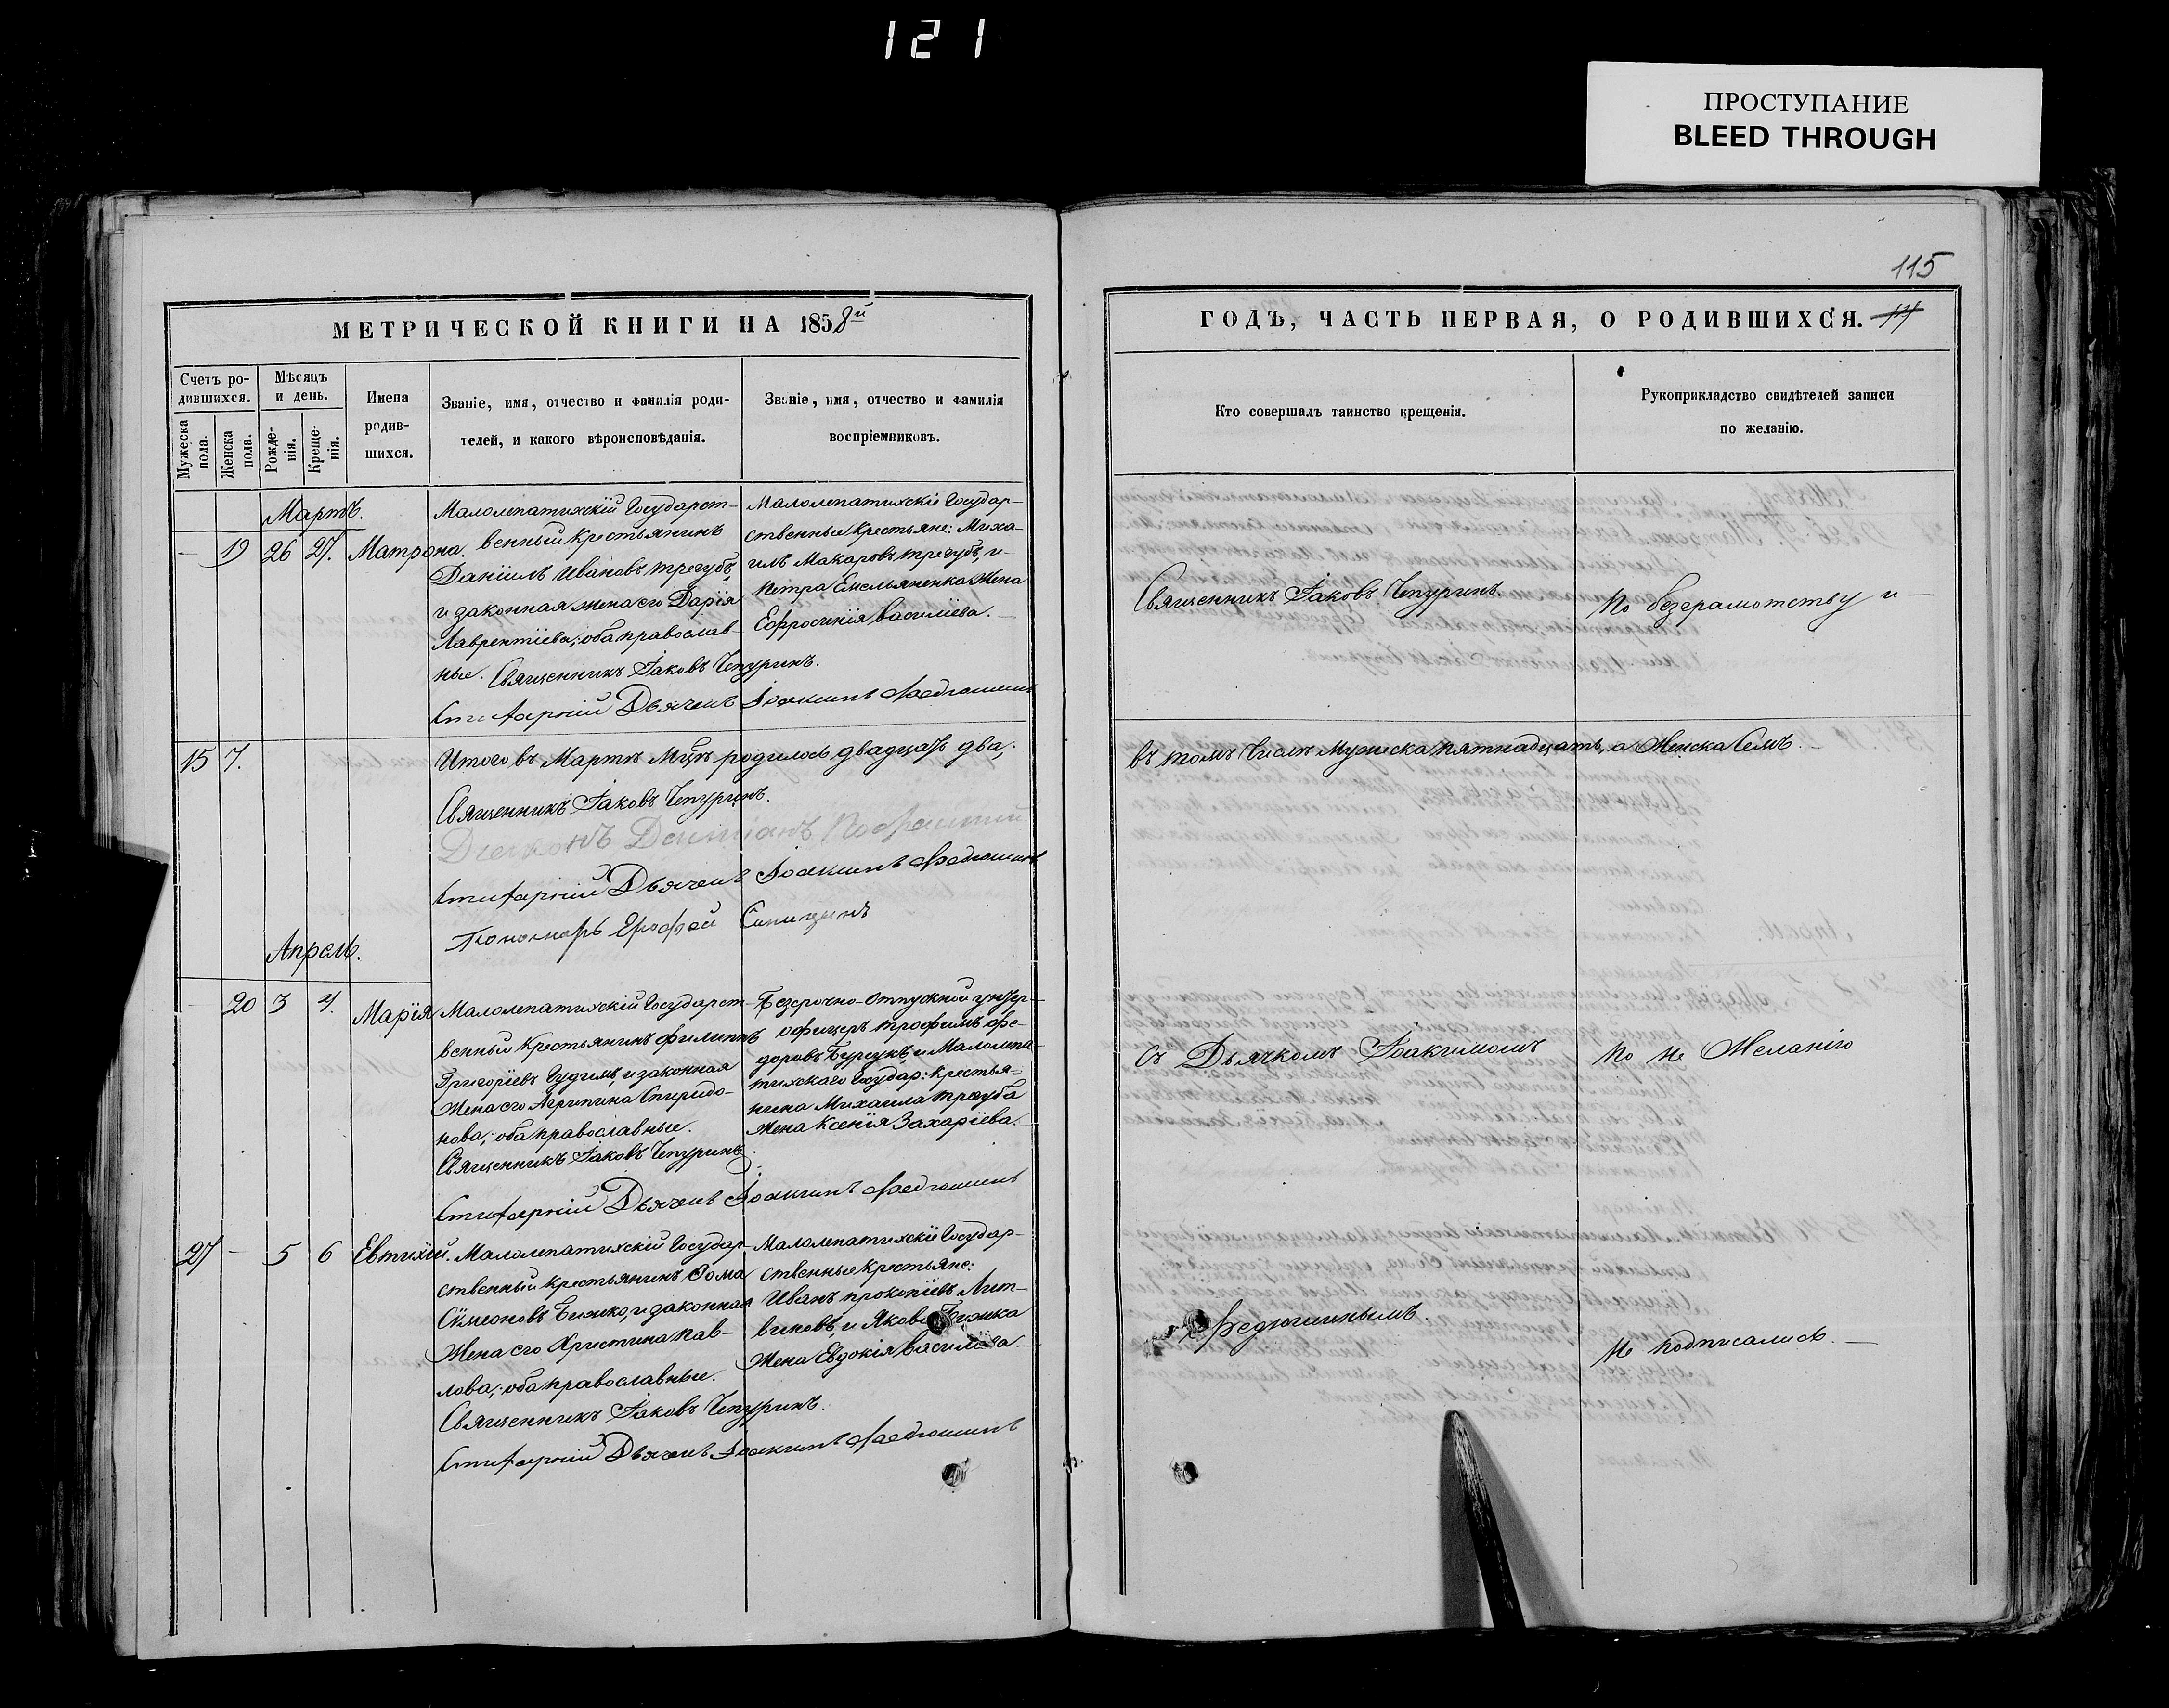 121
ПРОСТУПАНИЕ
BLEED THROUGH
МЕТРИЧЕСКОЙ КНИГИ НА 1858й
Счетъ ро-
дившихся.
Мужеска пола.
Женска пола.
Мѣсяцъ
и день.
Рожде-
нія.
Креще-
нія.
Имена
родив-
шихся.
Званіе, имя, отчество и фамилія роди-
телей, и какого вѣроисповѣданія.
Званіе, имя, отчество и фамилія
воспріемниковъ.
Мартъ.
— 19 26 27. Матрона.
Малолепатихскій Государст-
венный крестьянинъ
Даніилъ Ивановъ Трегубъ,
и законная жена его Дарія
Лаврентіева; оба православ-
ные. Священникъ Іаковъ Чепуринъ.
Стихарный Дьячекъ Іоакимъ Федюшинъ
Малолепатихскіе Государ-
ственные Крестьяне: Миха-
илъ Макаровъ Трегубъ, и
Петра Емельяненка Жена
Ефросинія Василіева. —
15 7.
Итого въ Мартѣ М͠цѣ родилось двадцать два;
Священникъ Іаковъ Чепуринъ.
Стихарный Дьячекъ Іоакимъ Федюшинъ
Пономарь Ерофей Синицынъ
Апрель.
— 20 3 4. Марія
Малолепатихскій Государст-
венный Крестьянинъ Филиппъ
Григоріевъ Гудимъ, и законная
Жена его Агрипина Спиридо-
нова; оба православные.
Священникъ Іаковъ Чепуринъ.
Стихарный Дьячекъ Іоакимъ Федюшинъ
Безсрочно-Отпускной унтер-
офицеръ Трофимъ Фе-
доровъ Бурсукъ, и Малолепа-
тихскаго Государ: крестья-
нина Михаила Трегуба
Жена Ксенія Захаріева.
21 — 5 6 Евтихій.
Малолепатихскій Государ-
ственный крестьянинъ Ѳома
Сѵмеоновъ Бижко, и законная
Жена его Христина Пав-
лова; оба православные.
Священникъ Іаковъ Чепуринъ.
Стихарный Дьячекъ Іоакимъ Федюшинъ
Малолепатихскіе Государ-
ственные Крестьяне:
Иванъ Прокопіевъ Лит-
виновъ, и Якова Бижка
Жена Евдокія Василіева. —
115
ГОДЪ, ЧАСТЬ ПЕРВАЯ, О РОДИВШИХСЯ.
Кто совершалъ таинство крещенія.
Рукоприкладство свидѣтелей записи
по желанію.
Священникъ Іаковъ Чепуринъ.
По безграмотству и —
въ томъ Числѣ Мужеска пятнадцать, а Женска Семъ. —
съ Дьячкомъ Іоакимомъ
по не Желанію
Федюшинымъ.
Не подписались. —